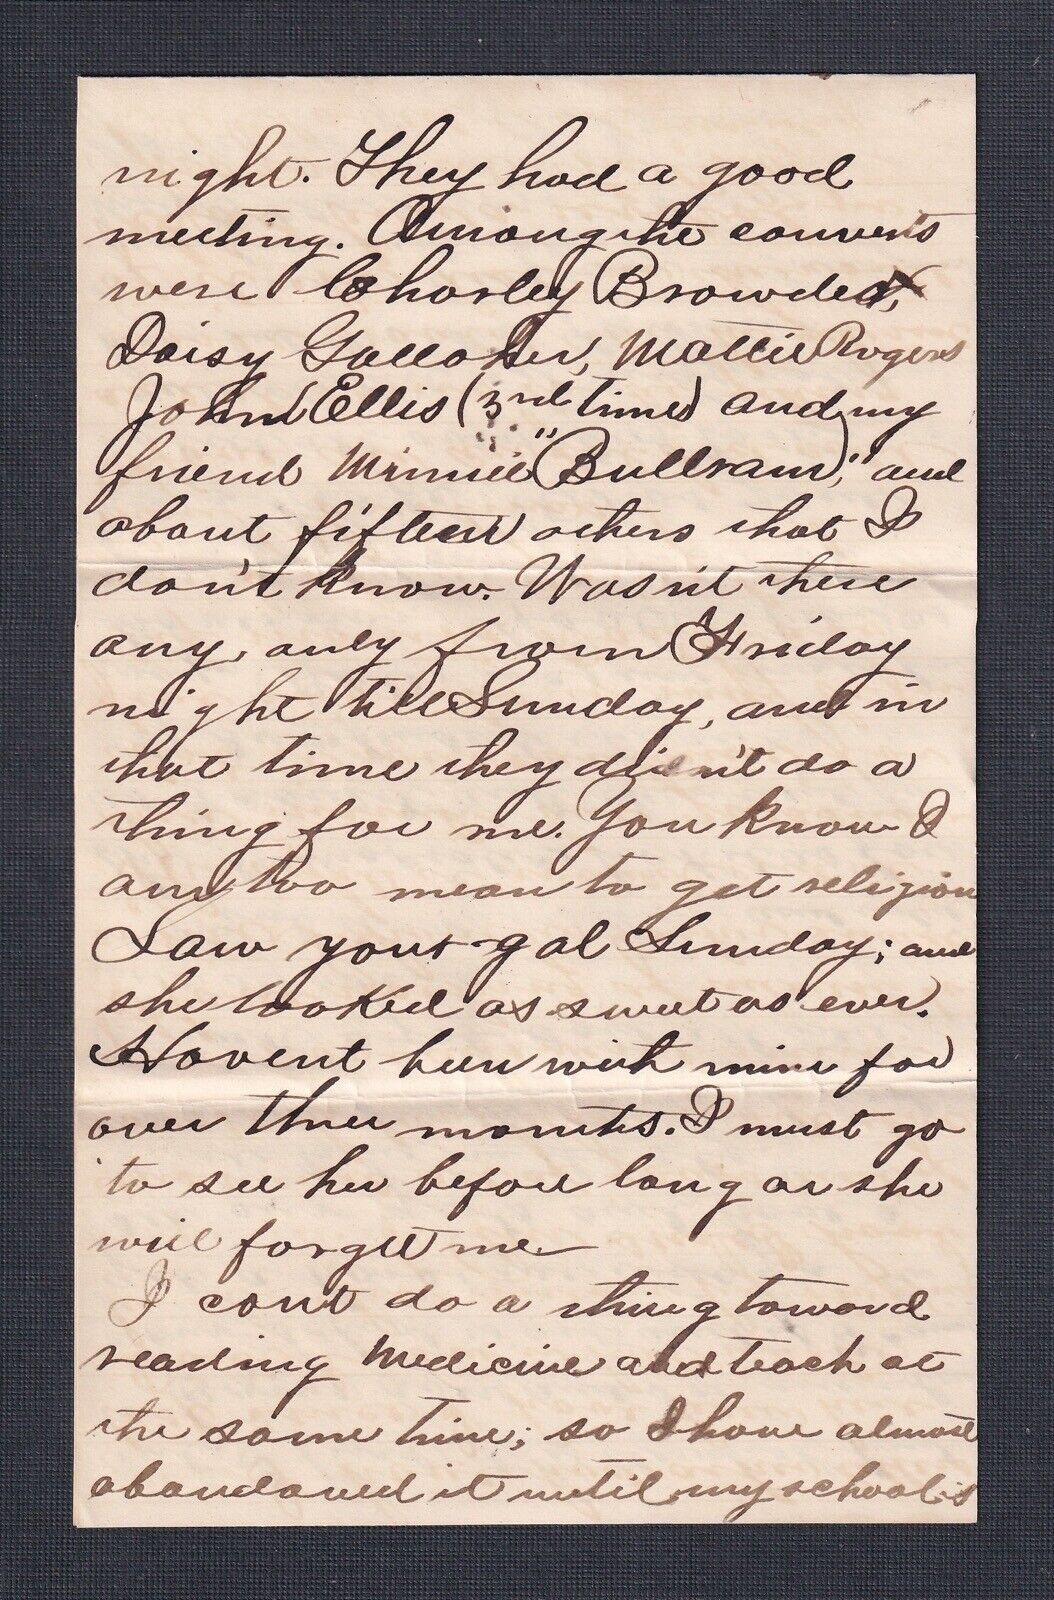 night. They had a good
meeting. Among the converts
were Charley Browder,
Daisy Gallaher, Mattie Rogers
John Ellis (3rd time) and my
friend Minnie "Bullram," and
about fifteen others that I
don't know. Wasn't there
any, only from Friday
night till Sunday, and in
that time they didn't do a
thing for me. You know I
am too mean to get religion
Saw your gal Sunday; and
she looked as sweet as ever.
Havent been with mine for
over three months. I must go
to see her before long or she
will forget me
I cont do a thing toward
reading Medicine and teach at
the same time; so I have almost
abandoned it until my school is